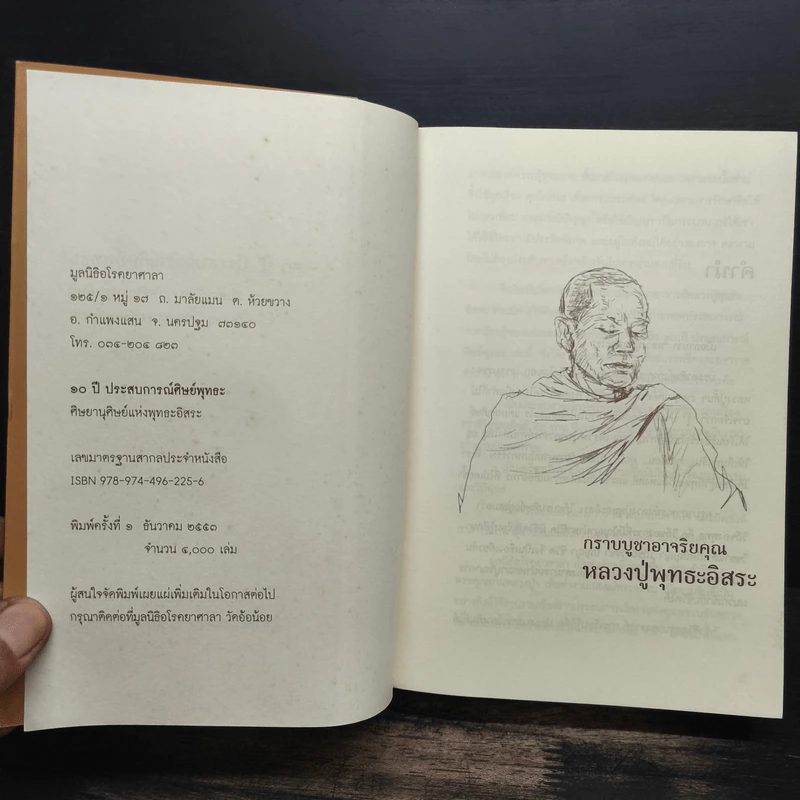 มูลนิธิอโรคยาศาลา
๑๒๕/๑ หมู่ ๑๗ ถ. มาลัยแมน ต. ห้วยขวาง
อ. กำแพงแสน จ. นครปฐม ๗๓๑๔๐
โทร. ๐๓๔-๒๐๔ ๘๒๓
๑๐ ปี ประสบการณ์ศิษย์พุทธะ
ศิษยานุศิษย์แห่งพุทธะอิสระ
เลขมาตรฐานสากลประจำหนังสือ
ISBN 978-974-496-225-6
พิมพ์ครั้งที่ ๑ ธันวาคม ๒๕๕๓
จำนวน ๔,๐๐๐ เล่ม
ผู้สนใจจัดพิมพ์เผยแผ่เพิ่มเติมในโอกาสต่อไป
กรุณาติดต่อที่มูลนิธิอโรคยาศาลา วัดอ้อน้อย
กราบบูชาอาจริยคุณ
หลวงปู่พุทธะอิสระ